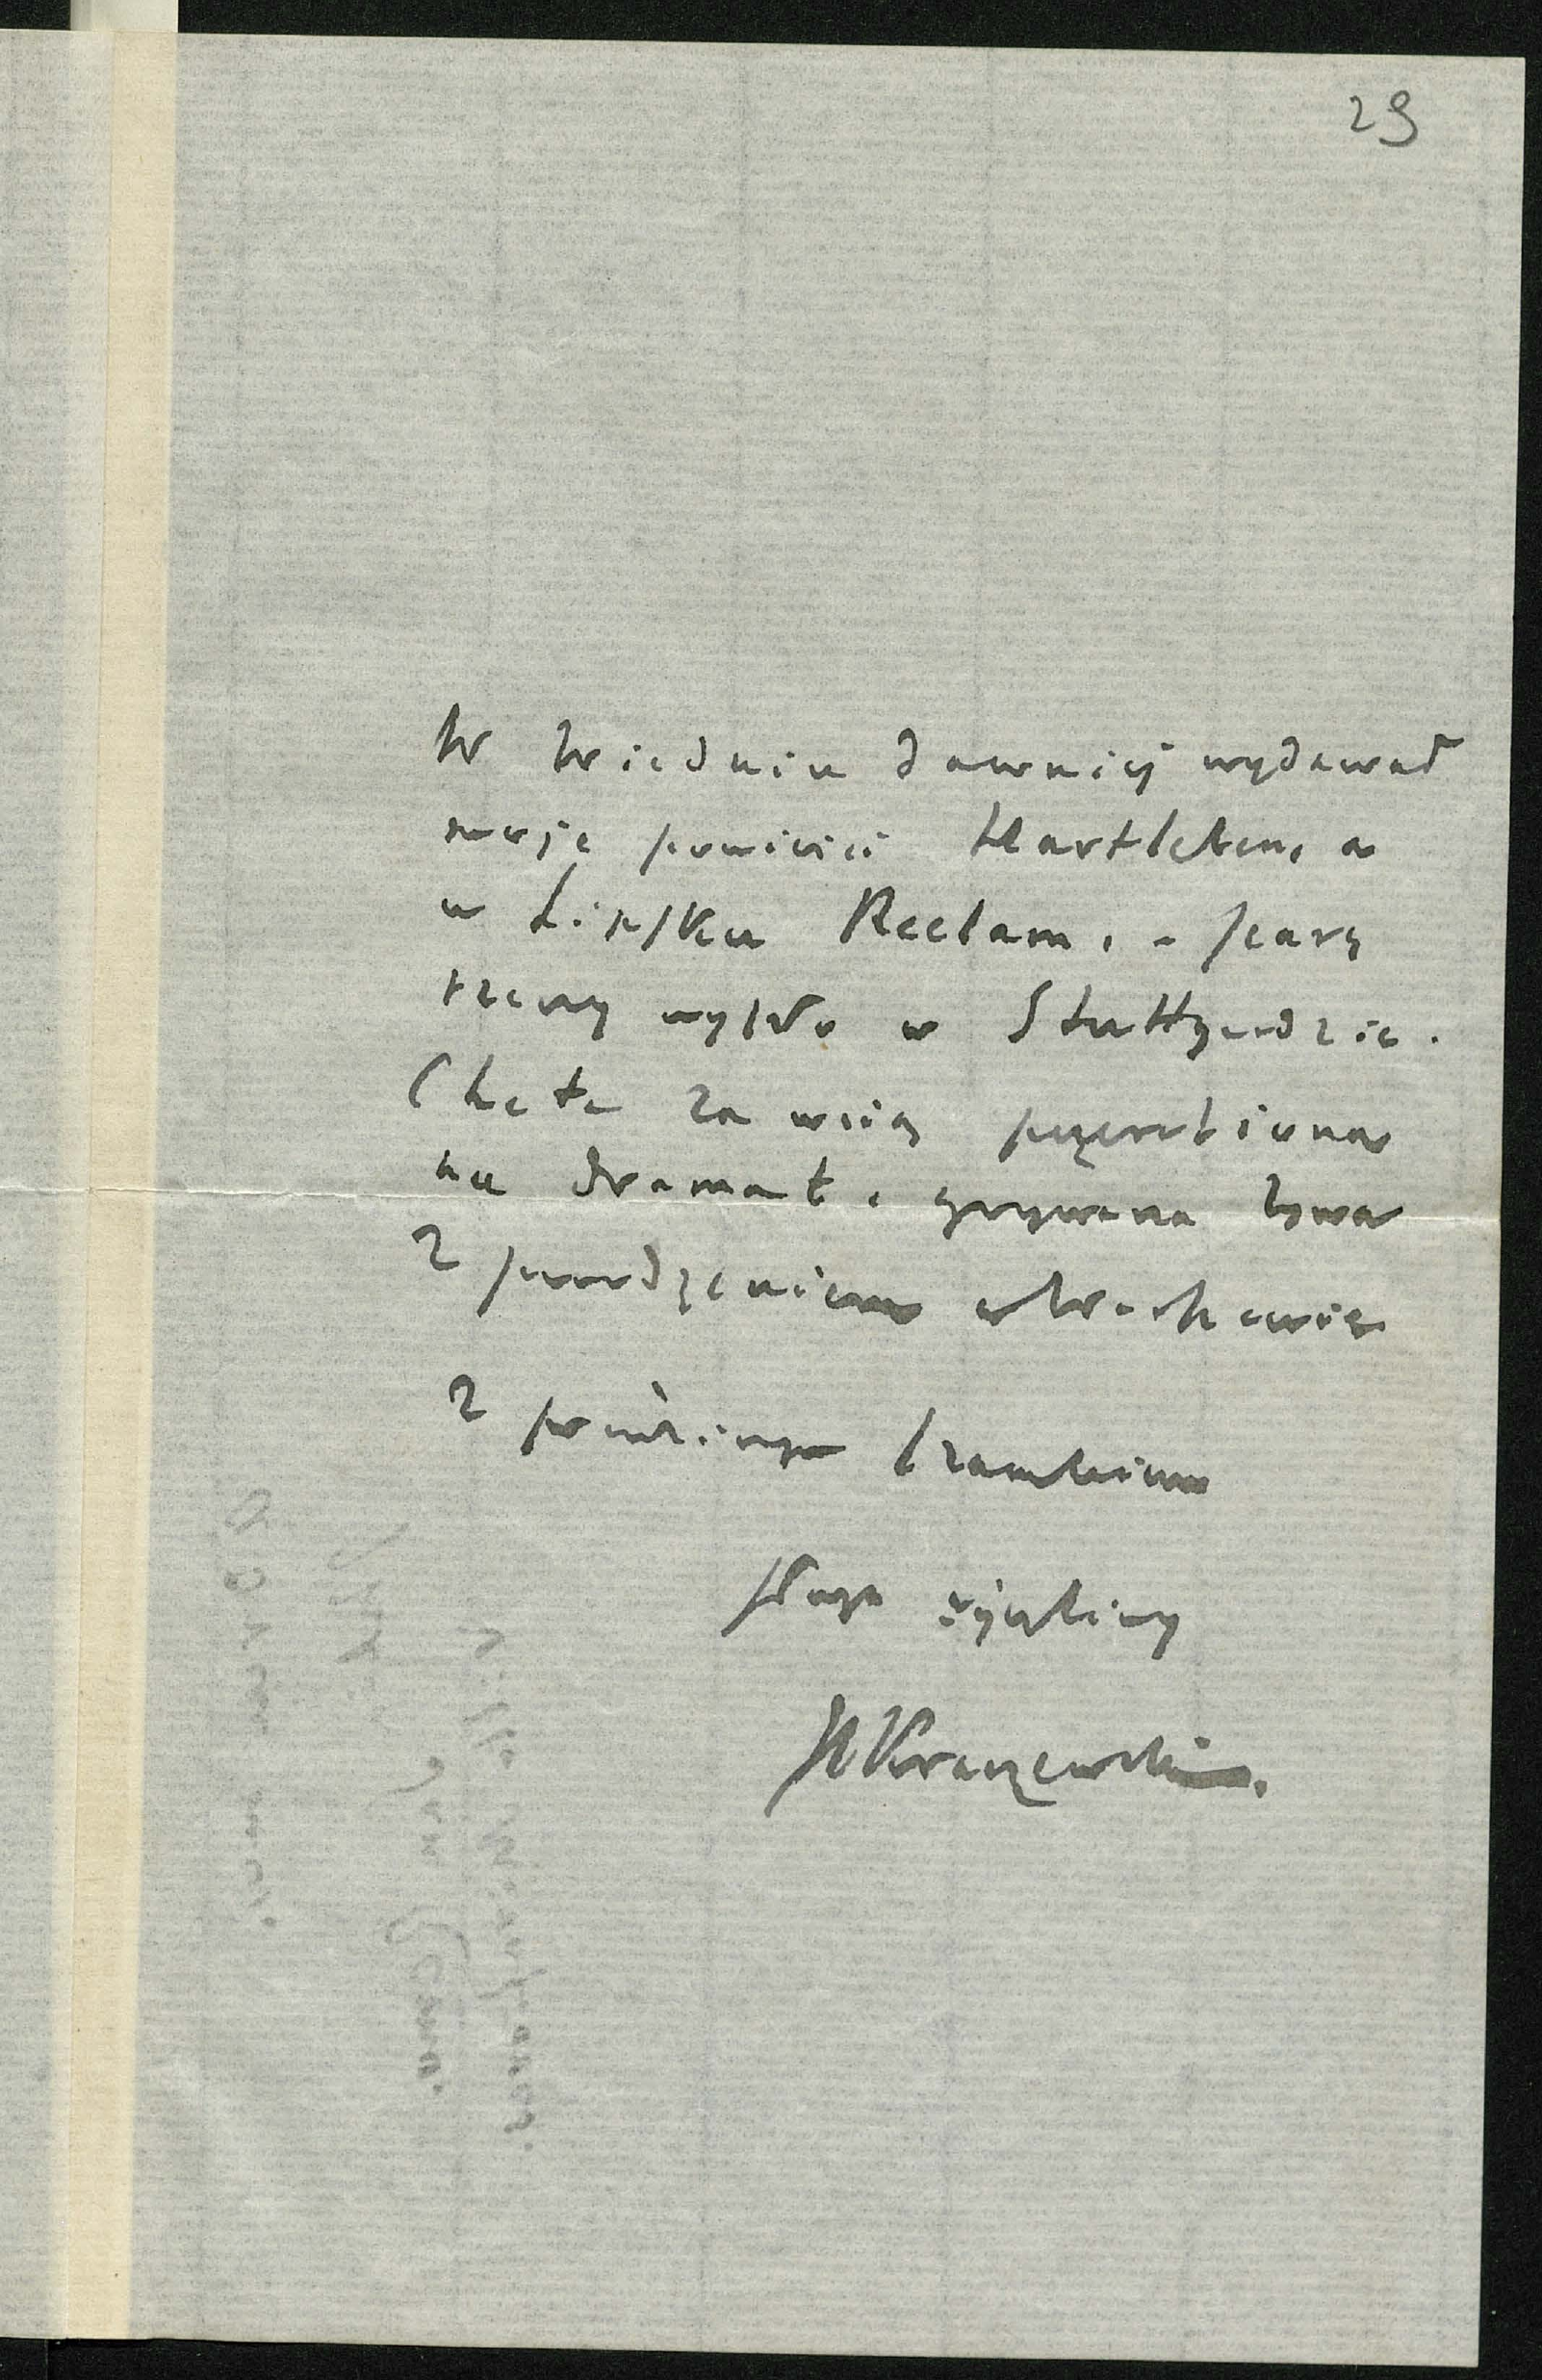 29
W Wiedniu dawniej wydawał
moje powieści Hartleben, a
w Lipsku Reclam, - parę
rzeczy wyszło w Stuttgardzie.
Chata za wsią przerobiona
na dramat, grywana bywa
z powodzeniem w Warszawie
z poważnym szacunkiem
sługa życzliwy
JIKraszewski.